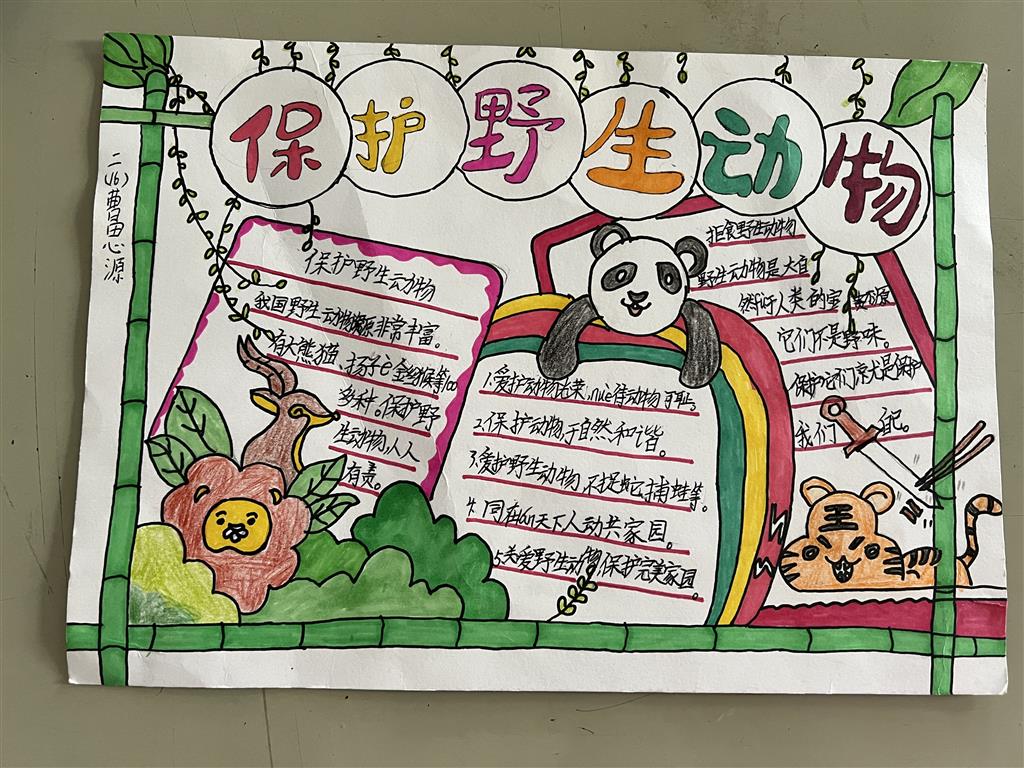 保护野生动物
二(16)曹心源
保护野生动物
我国野生动物资源非常丰富。
有大熊猫、扬子e金丝猴等100
多种。保护野
生动物,人人
有责。
1.爱护动物光荣,nüè待动物可耻。
2.保护动物,于自然和谐。
3.爱护野生动物,不捉蛇捕蛙等。
4.同在蓝天下人动共家园。
5.关爱野生动物,保护完美家园。
拒食野生动物
野生动物是大自
然对人类的宝
它们不是野味。
保护它们就是保护
我们 己。
王